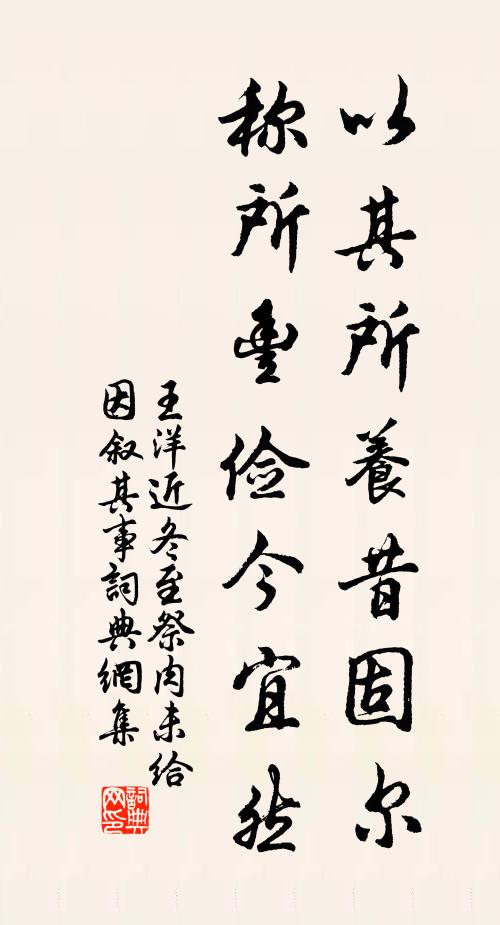 以其所養昔固尔
称所豊俭今宜然
王洋近冬至祭肉未给
因叙其事詞典網集
詞典网印